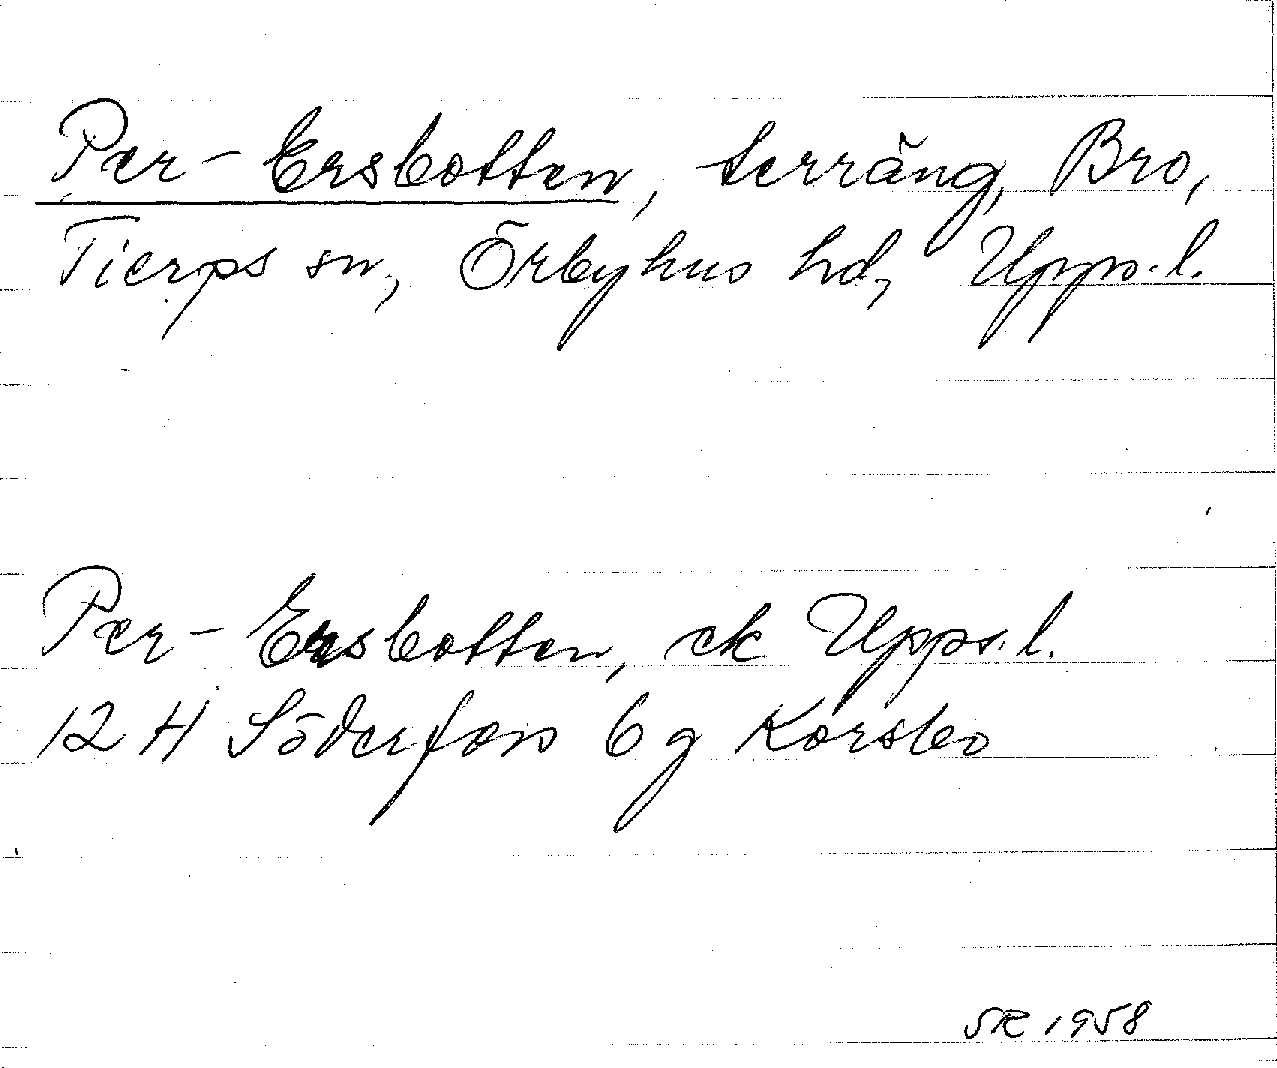 Per-Ersbotten, terräng, Bro,
Tierps sn, Örbyhus hd, Upps. l.
Per-Ersbotten, ek Upps. l.
12 H Söderfors 6 g Korsbo
SR 1958